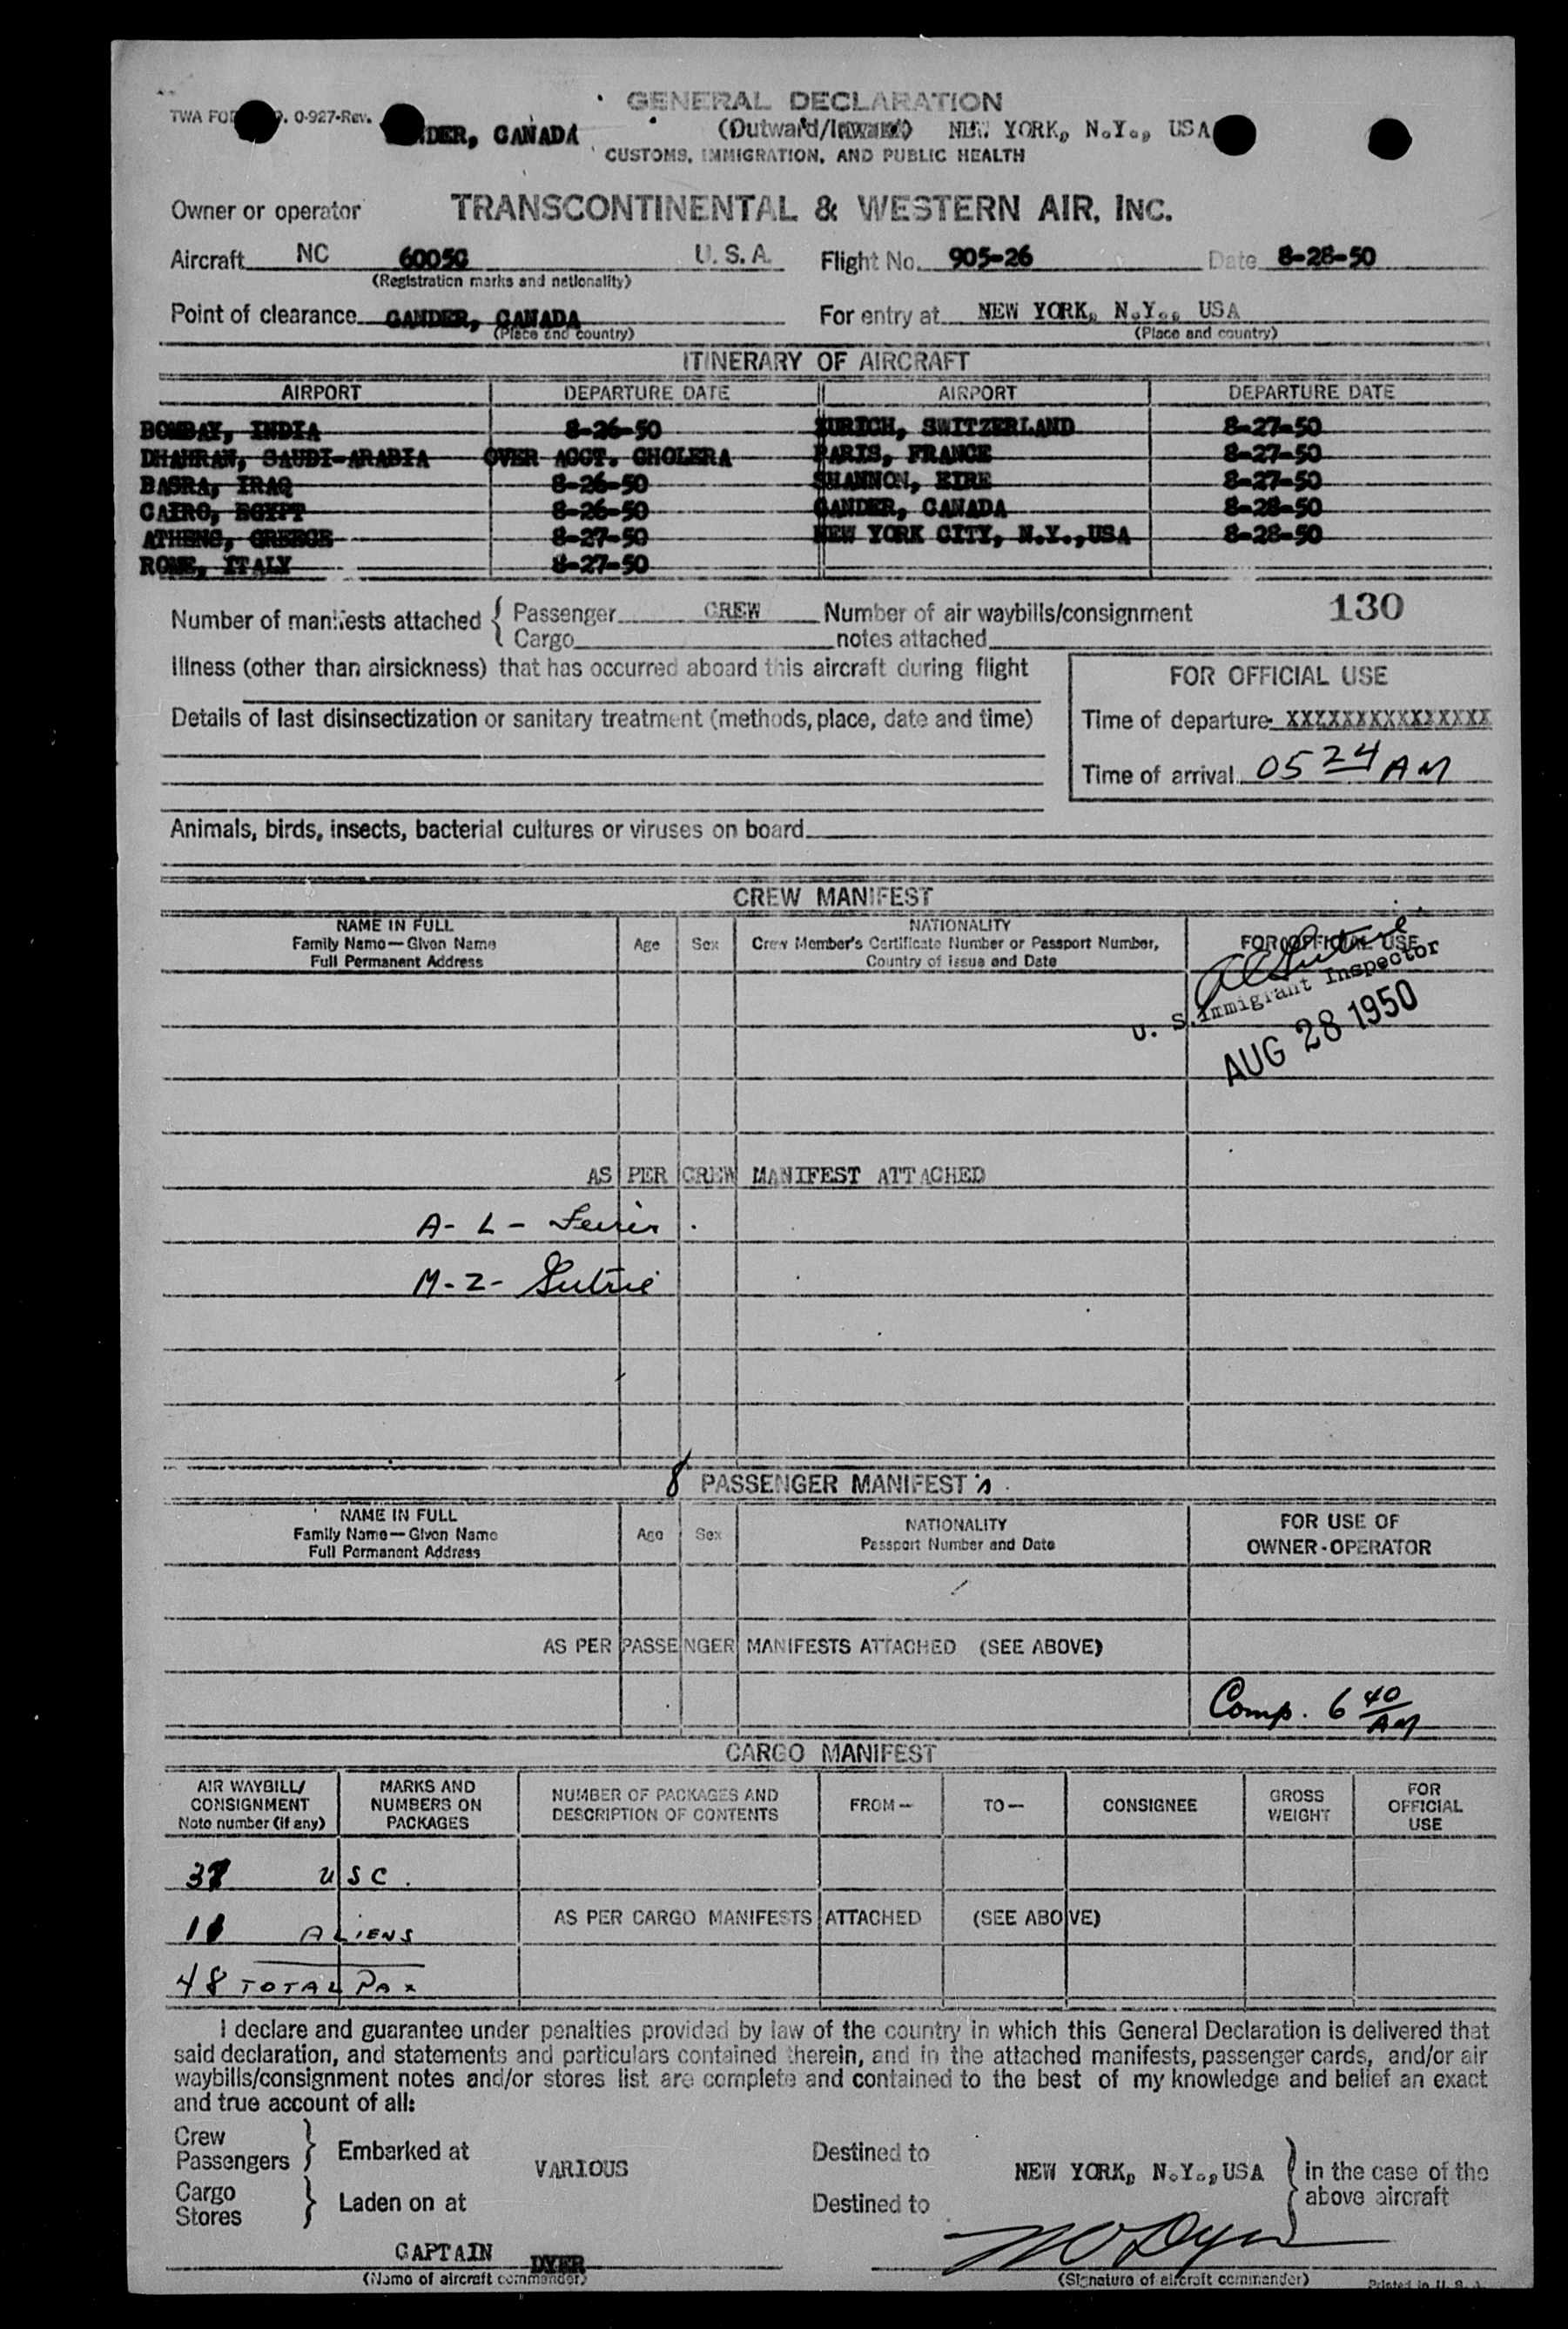 GENERAL DECLARATION
TWA FO . 0-927-Rev.
DER, CANADA (Outward/Inward) NEW YORK, N.Y., USA
CUSTOMS, IMMIGRATION, AND PUBLIC HEALTH
Owner or operator TRANSCONTINENTAL & WESTERN AIR, INC.
Aircraft NC 6005C U.S.A. Flight No. 905-26 Date 8-28-50
(Registration marks and nationality)
Point of clearance GANDER, CANADA For entry at NEW YORK, N.Y., USA
(Place and country) (Place and country)
ITINERARY OF AIRCRAFT
AIRPORT DEPARTURE DATE AIRPORT DEPARTURE DATE
BOMBAY, INDIA 8-26-50 ZURICH, SWITZERLAND 8-27-50
DHAHRAN, SAUDI-ARABIA OVER ACCT. CHOLERA PARIS, FRANCE 8-27-50
BASRA, IRAQ 8-26-50 SHANNON, EIRE 8-27-50
CAIRO, EGYPT 8-26-50 GANDER, CANADA 8-28-50
ATHENS, GREECE 8-27-50 NEW YORK CITY, N.Y.,USA 8-28-50
ROME, ITALY 8-27-50
Number of manifests attached { Passenger CREW Number of air waybills/consignment 130
Cargo notes attached
Illness (other than airsickness) that has occurred aboard this aircraft during flight
FOR OFFICIAL USE
Details of last disinsectization or sanitary treatment (methods, place, date and time)
Time of departure XXXXXXXXXXXXXXX
Time of arrival 05 24 AM
Animals, birds, insects, bacterial cultures or viruses on board
CREW MANIFEST
NAME IN FULL
Family Name—Given Name
Full Permanent Address
Age
Sex
NATIONALITY
Crew Member's Certificate Number or Passport Number,
Country of Issue and Date
FOR OFFICIAL USE
U. S. Immigrant Inspector
AUG 28 1950
AS PER CREW MANIFEST ATTACHED
A- L-
M-2-
8 PASSENGER MANIFEST's
NAME IN FULL
Family Name—Given Name
Full Permanent Address
Age
Sex
NATIONALITY
Passport Number and Date
FOR USE OF
OWNER-OPERATOR
AS PER PASSENGER MANIFESTS ATTACHED (SEE ABOVE)
Comp. 6 40/AM
CARGO MANIFEST
AIR WAYBILL/
CONSIGNMENT
Note number (if any)
MARKS AND
NUMBERS ON
PACKAGES
NUMBER OF PACKAGES AND
DESCRIPTION OF CONTENTS
FROM—
TO—
CONSIGNEE
GROSS
WEIGHT
FOR
OFFICIAL
USE
USC.
AS PER CARGO MANIFESTS ATTACHED (SEE ABOVE)
ALIENS
48 TOTAL PAX
I declare and guarantee under penalties provided by law of the country in which this General Declaration is delivered that
said declaration, and statements and particulars contained therein, and in the attached manifests, passenger cards, and/or air
waybills/consignment notes and/or stores list are complete and contained to the best of my knowledge and belief an exact
and true account of all:
Crew
Passengers } Embarked at VARIOUS Destined to NEW YORK, N.Y.,USA } in the case of the
above aircraft
Cargo
Stores } Laden on at Destined to
CAPTAIN DYER
(Name of aircraft commander) (Signature of aircraft commander)
Printed in U. S. A.